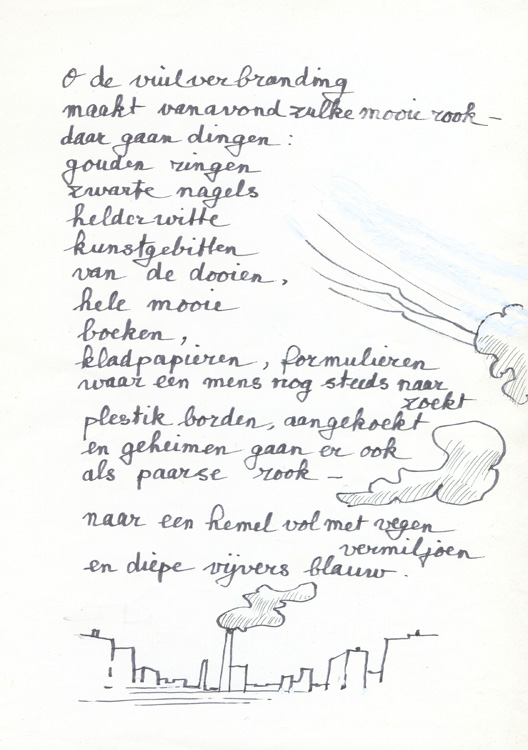 O de vuilverbranding
maakt vanavond zulke mooie rook –
daar gaan dingen :
gouden ringen
zwarte nagels
helderwitte
kunstgebitten
van de dooien,
hele mooie
boeken,
kladpapieren, formulieren
waar een mens nog steeds naar
zoekt
plestik borden, aangekoekt
en geheimen gaan er ook
als paarse rook –
naar een hemel vol met vegen
vermiljoen
en diepe vijvers blauw.